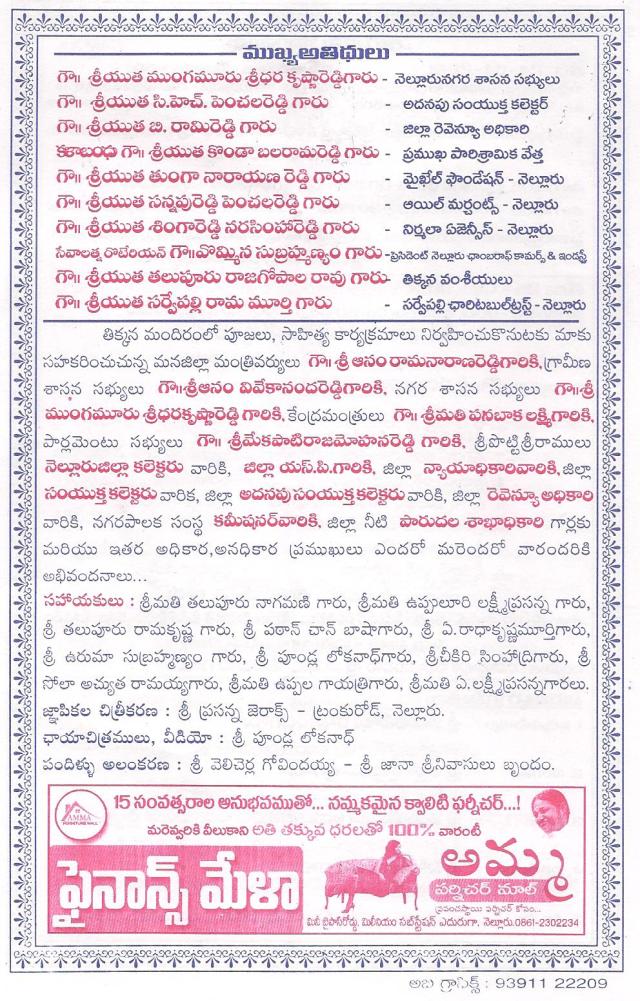 ముఖ్యఅతిథులు
గౌ॥ శ్రీయుత ముంగమూరు శ్రీధర కృష్ణారెడ్డిగారు - నెల్లూరునగర శాసన సభ్యులు
గౌ॥ శ్రీయుత సి.హెచ్. పెంచలరెడ్డి గారు - అదనపు సంయుక్త కలెక్టర్
గౌ॥ శ్రీయుత బి. రామిరెడ్డి గారు - జిల్లా రెవెన్యూ అధికారి
కళాబంధు గౌ॥ శ్రీయుత కొండా బలరామరెడ్డి గారు - ప్రముఖ పారిశ్రామిక వేత్త
గౌ॥ శ్రీయుత తుంగా నారాయణ రెడ్డి గారు - మైఖేల్ ఫౌండేషన్ - నెల్లూరు
గౌ॥ శ్రీయుత సన్నపురెడ్డి పెంచలరెడ్డి గారు - ఆయిల్ మర్చంట్స్ - నెల్లూరు
గౌ॥ శ్రీయుత శింగారెడ్డి నరసింహారెడ్డి గారు - నిర్మలా ఏజెన్సీస్ - నెల్లూరు
సేవాలత్న రొటేరియన్ గౌ॥వొమ్మిన సుబ్రహ్మణ్యం గారు -ప్రెసిడెంట్ నెల్లూరు ఛాంబరాఫ్ కామర్స్ & ఇండస్ట్రీ
గౌ॥ శ్రీయుత తలుపూరు రాజగోపాల రావు గారు- తిక్కన వంశీయులు
గౌ॥ శ్రీయుత సర్వేపల్లి రామ మూర్తి గారు - సర్వేపల్లి ఛారిటబుల్‌ట్రస్ట్ - నెల్లూరు
తిక్కన మందిరంలో పూజలు, సాహిత్య కార్యక్రమాలు నిర్వహించుకొనుటకు మాకు
సహకరించుచున్న మనజిల్లా మంత్రివర్యులు గౌ॥ శ్రీ ఆనం రామనారాణరెడ్డిగారికి,గ్రామీణ
శాసన సభ్యులు గౌ॥శ్రీఆనం వివేకానందరెడ్డిగారికి, నగర శాసన సభ్యులు గౌ॥శ్రీ
ముంగమూరు శ్రీధరకృష్ణారెడ్డి గారికి,కేంద్రమంత్రులు గౌ॥ శ్రీమతి పనబాక లక్ష్మిగారికి,
పార్లమెంటు సభ్యులు గౌ॥ శ్రీమేకపాటిరాజమోహనరెడ్డి గారికి, శ్రీపొట్టిశ్రీరాములు
నెల్లూరుజిల్లా కలెక్టరు వారికి, జిల్లా యస్.పి.గారికి, జిల్లా న్యాయాధికారివారికి,జిల్లా
సంయుక్తకలెక్టరు వారిక, జిల్లా అదనపు సంయుక్తకలెక్టరు వారికి, జిల్లా రెవెన్యూఅధికారి
వారికి, నగరపాలక సంస్థ కమీషనర్‌వారికి, జిల్లా నీటి పారుదల శాఖాధికారి గార్లకు
మరియు ఇతర అధికార,అనధికార ప్రముఖులు ఎందరో మరెందరో వారందరికి
అభివందనాలు...
సహాయకులు : శ్రీమతి తలుపూరు నాగమణి గారు, శ్రీమతి ఉప్పులూరి లక్ష్మీప్రసన్న గారు,
శ్రీ తలుపూరు రామకృష్ణ గారు, శ్రీ పఠాన్ చాన్ బాషాగారు, శ్రీ ఏ.రాధాకృష్ణమూర్తిగారు,
శ్రీ ఉరుమా సుబ్రహ్మణ్యం గారు, శ్రీ పూండ్ల లోకనాథ్‌గారు, శ్రీచీకిరి సింహాద్రిగారు, శ్రీ
సోలా అచ్యుత రామయ్యగారు, శ్రీమతి ఉప్పల గాయత్రిగారు, శ్రీమతి ఏ.లక్ష్మీప్రసన్నగారలు.
జ్ఞాపికల చిత్రీకరణ : శ్రీ ప్రసన్న జెరాక్స్ - ట్రంకురోడ్, నెల్లూరు.
ఛాయాచిత్రములు, వీడియో : శ్రీ పూండ్ల లోకనాధ్
పందిళ్ళు అలంకరణ : శ్రీ వెలిచెర్ల గోవిందయ్య - శ్రీ జానా శ్రీనివాసులు బృందం.
15 సంవత్సరాల అనుభవముతో... నమ్మకమైన క్వాలిటి ఫర్నీచర్...!
AMMA
FURNITURE MALL
మరెవ్వరికి వీలుకాని అతి తక్కువ ధరలతో 100% వారంటీ
ఫైనాన్స్ మేళా
అమ్మ
ఫర్నిచర్ మాల్
ప్రపంచస్థాయి ఫర్నిచర్ కోసం...
మినీ బైపాస్‌రోడ్డు, మిలీనియం సబ్‌స్టేషన్ ఎదురుగా, నెల్లూరు.0861-2302234
అబి గ్రాఫిక్స్ : 93911 22209